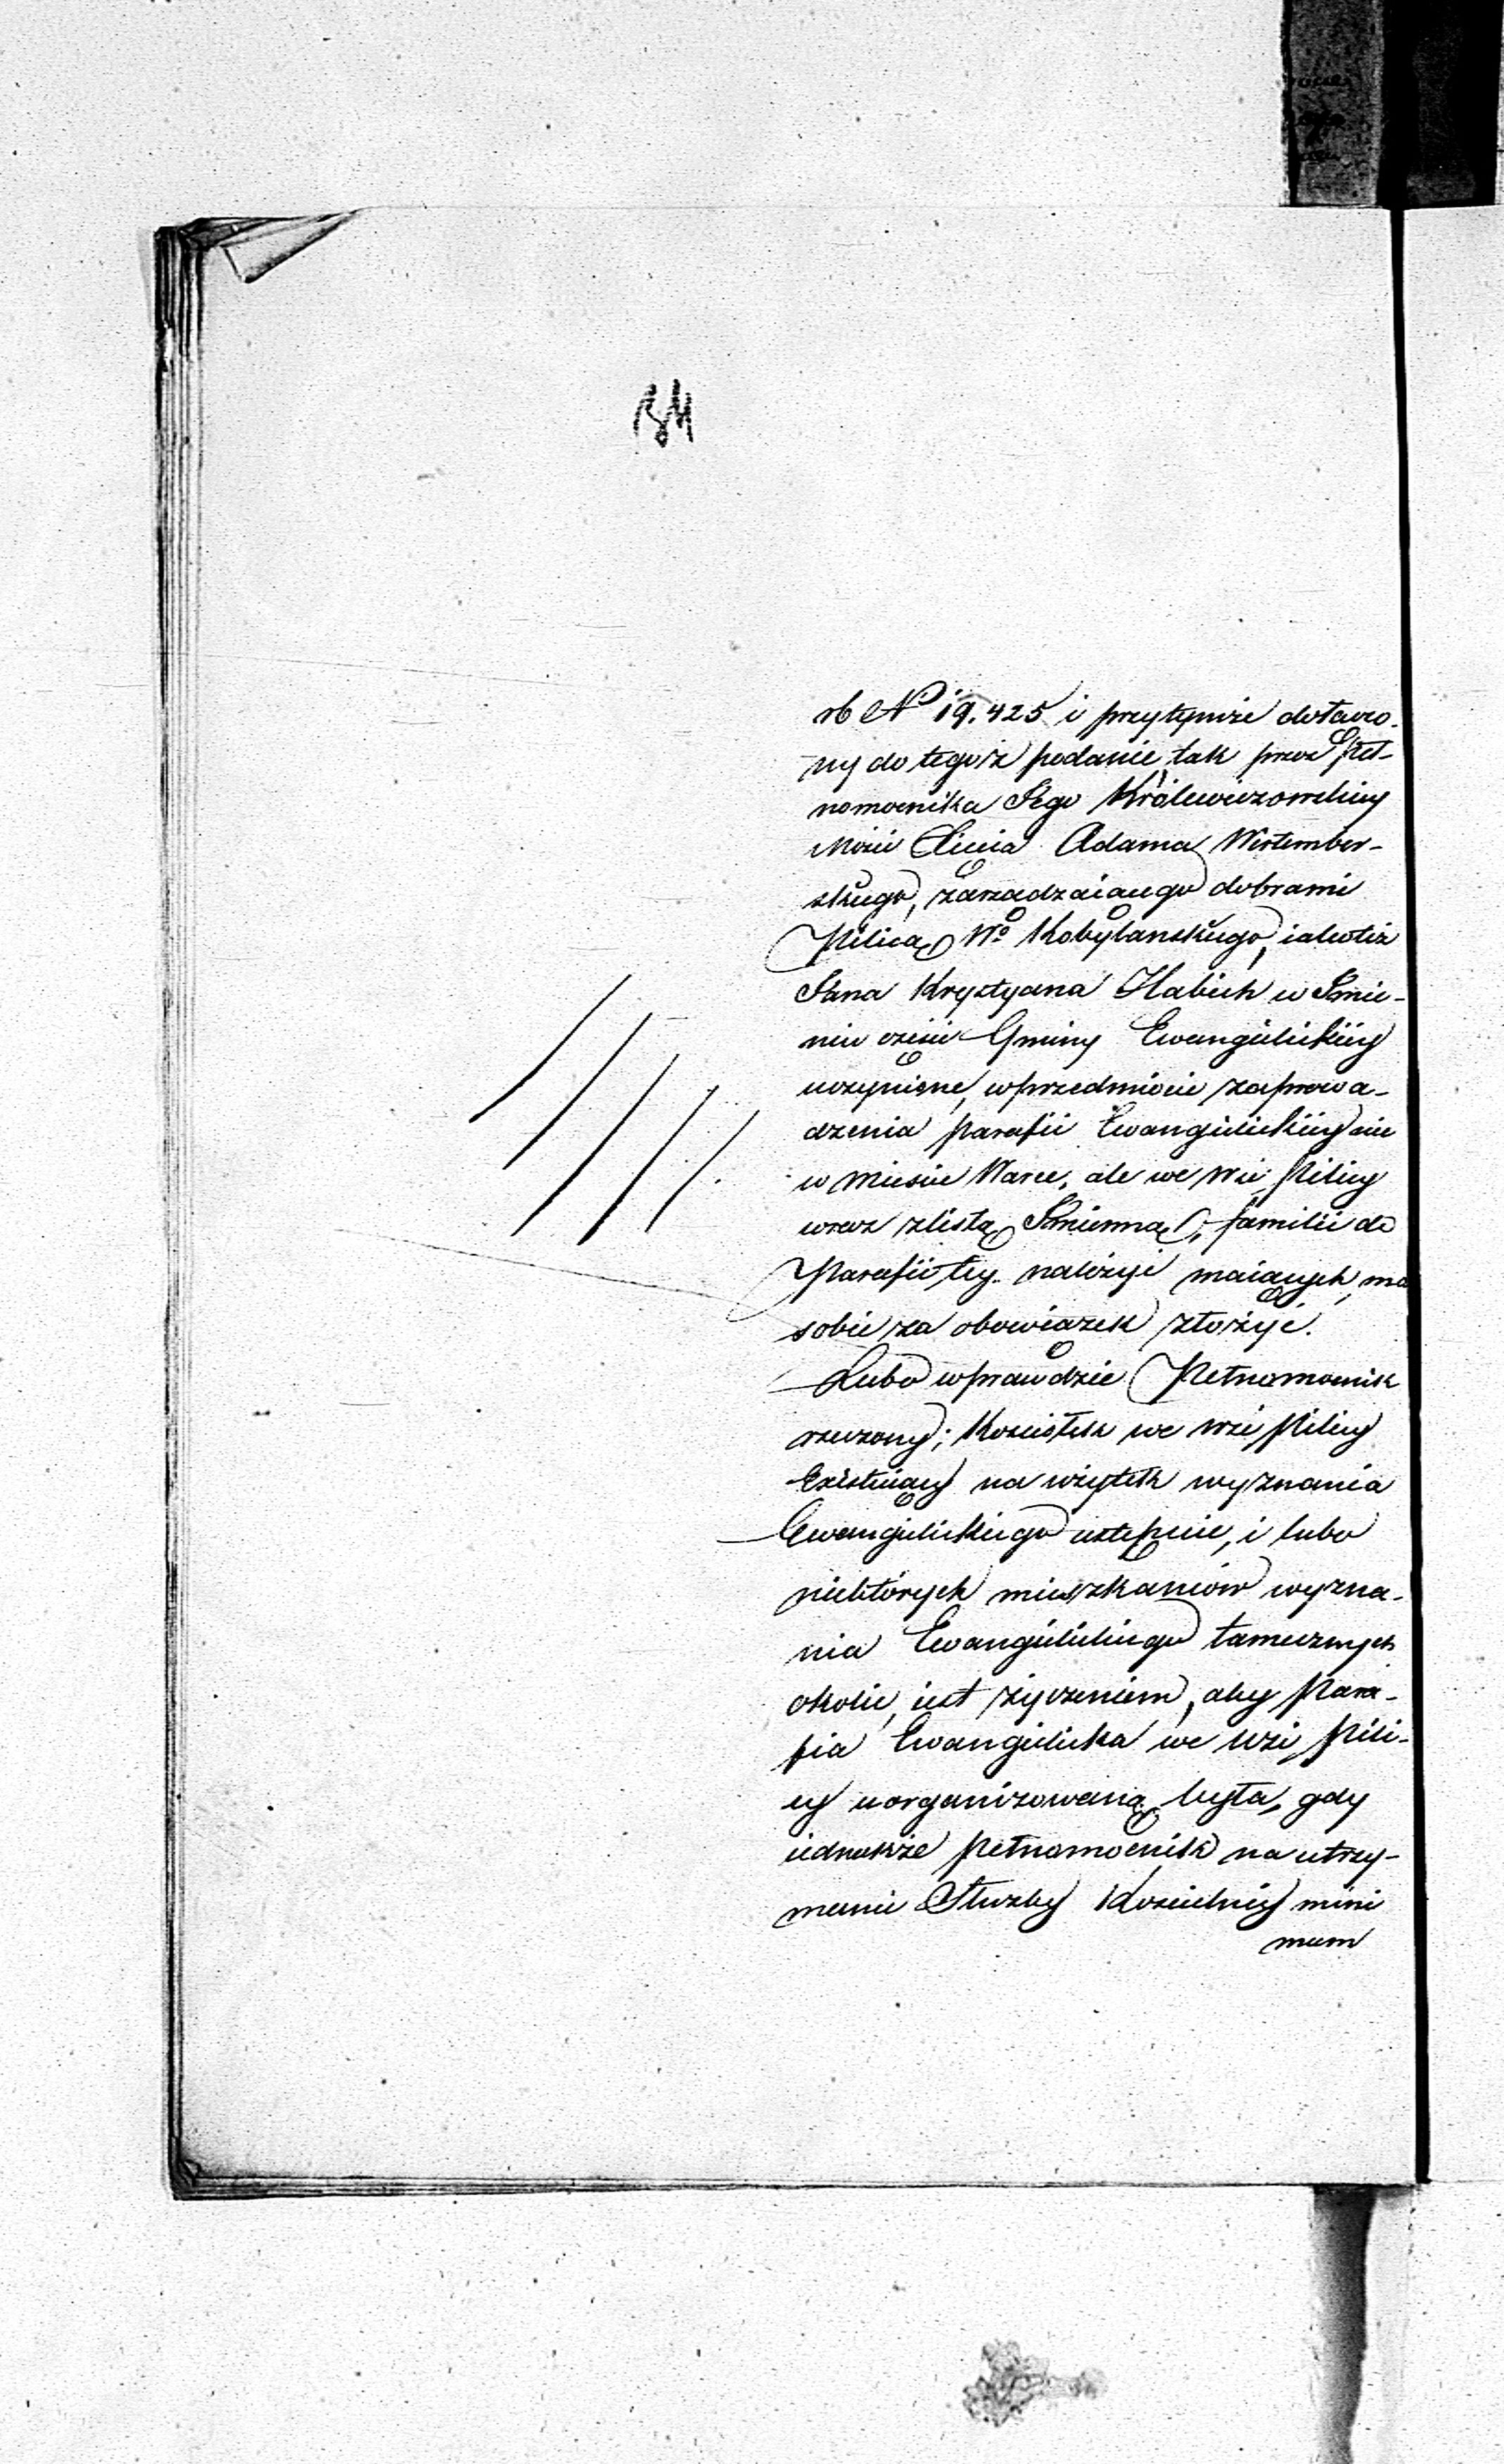 34
rb No 19.425 i przytymże dołączo-
ny do tegoż podanie, tak przez Peł-
nomocnika Jego Królewiczowskiey
Mości Xięcia Adama Wirtember-
skiego, zarządzaiącego dobrami
Pilicą Wo Kobylanskiego, iakotiż
Pana Krystyana Habich w Imie-
niu części Gminy Ewangielickiey
uczynione, w przedmiocie zaprowa-
dzenia parafii Ewangielickiey nie
w mieście Warce, ale we wsi Pilicy
wraz z listą Imienną, familii do
Parafii tey należyć maiących, ma
sobie za obowiązek złożyć.
Lubo wprawdzie Pełnomocnik
rzeczony; Kościołek we wsi Pilicy
Existuiący na użytek wyznania
Ewangielickiego ustępuie, i lubo
niektórych mieszkańców wyzna-
nia Ewangielickiego tamecznych
okolic, iest życzeniem, aby Para-
fia Ewangielicka we wsi Pili-
cy uorganizowaną była, gdy
iednakże Pełnomocnik na utrzy-
manie Służby Kościelney mini
mum